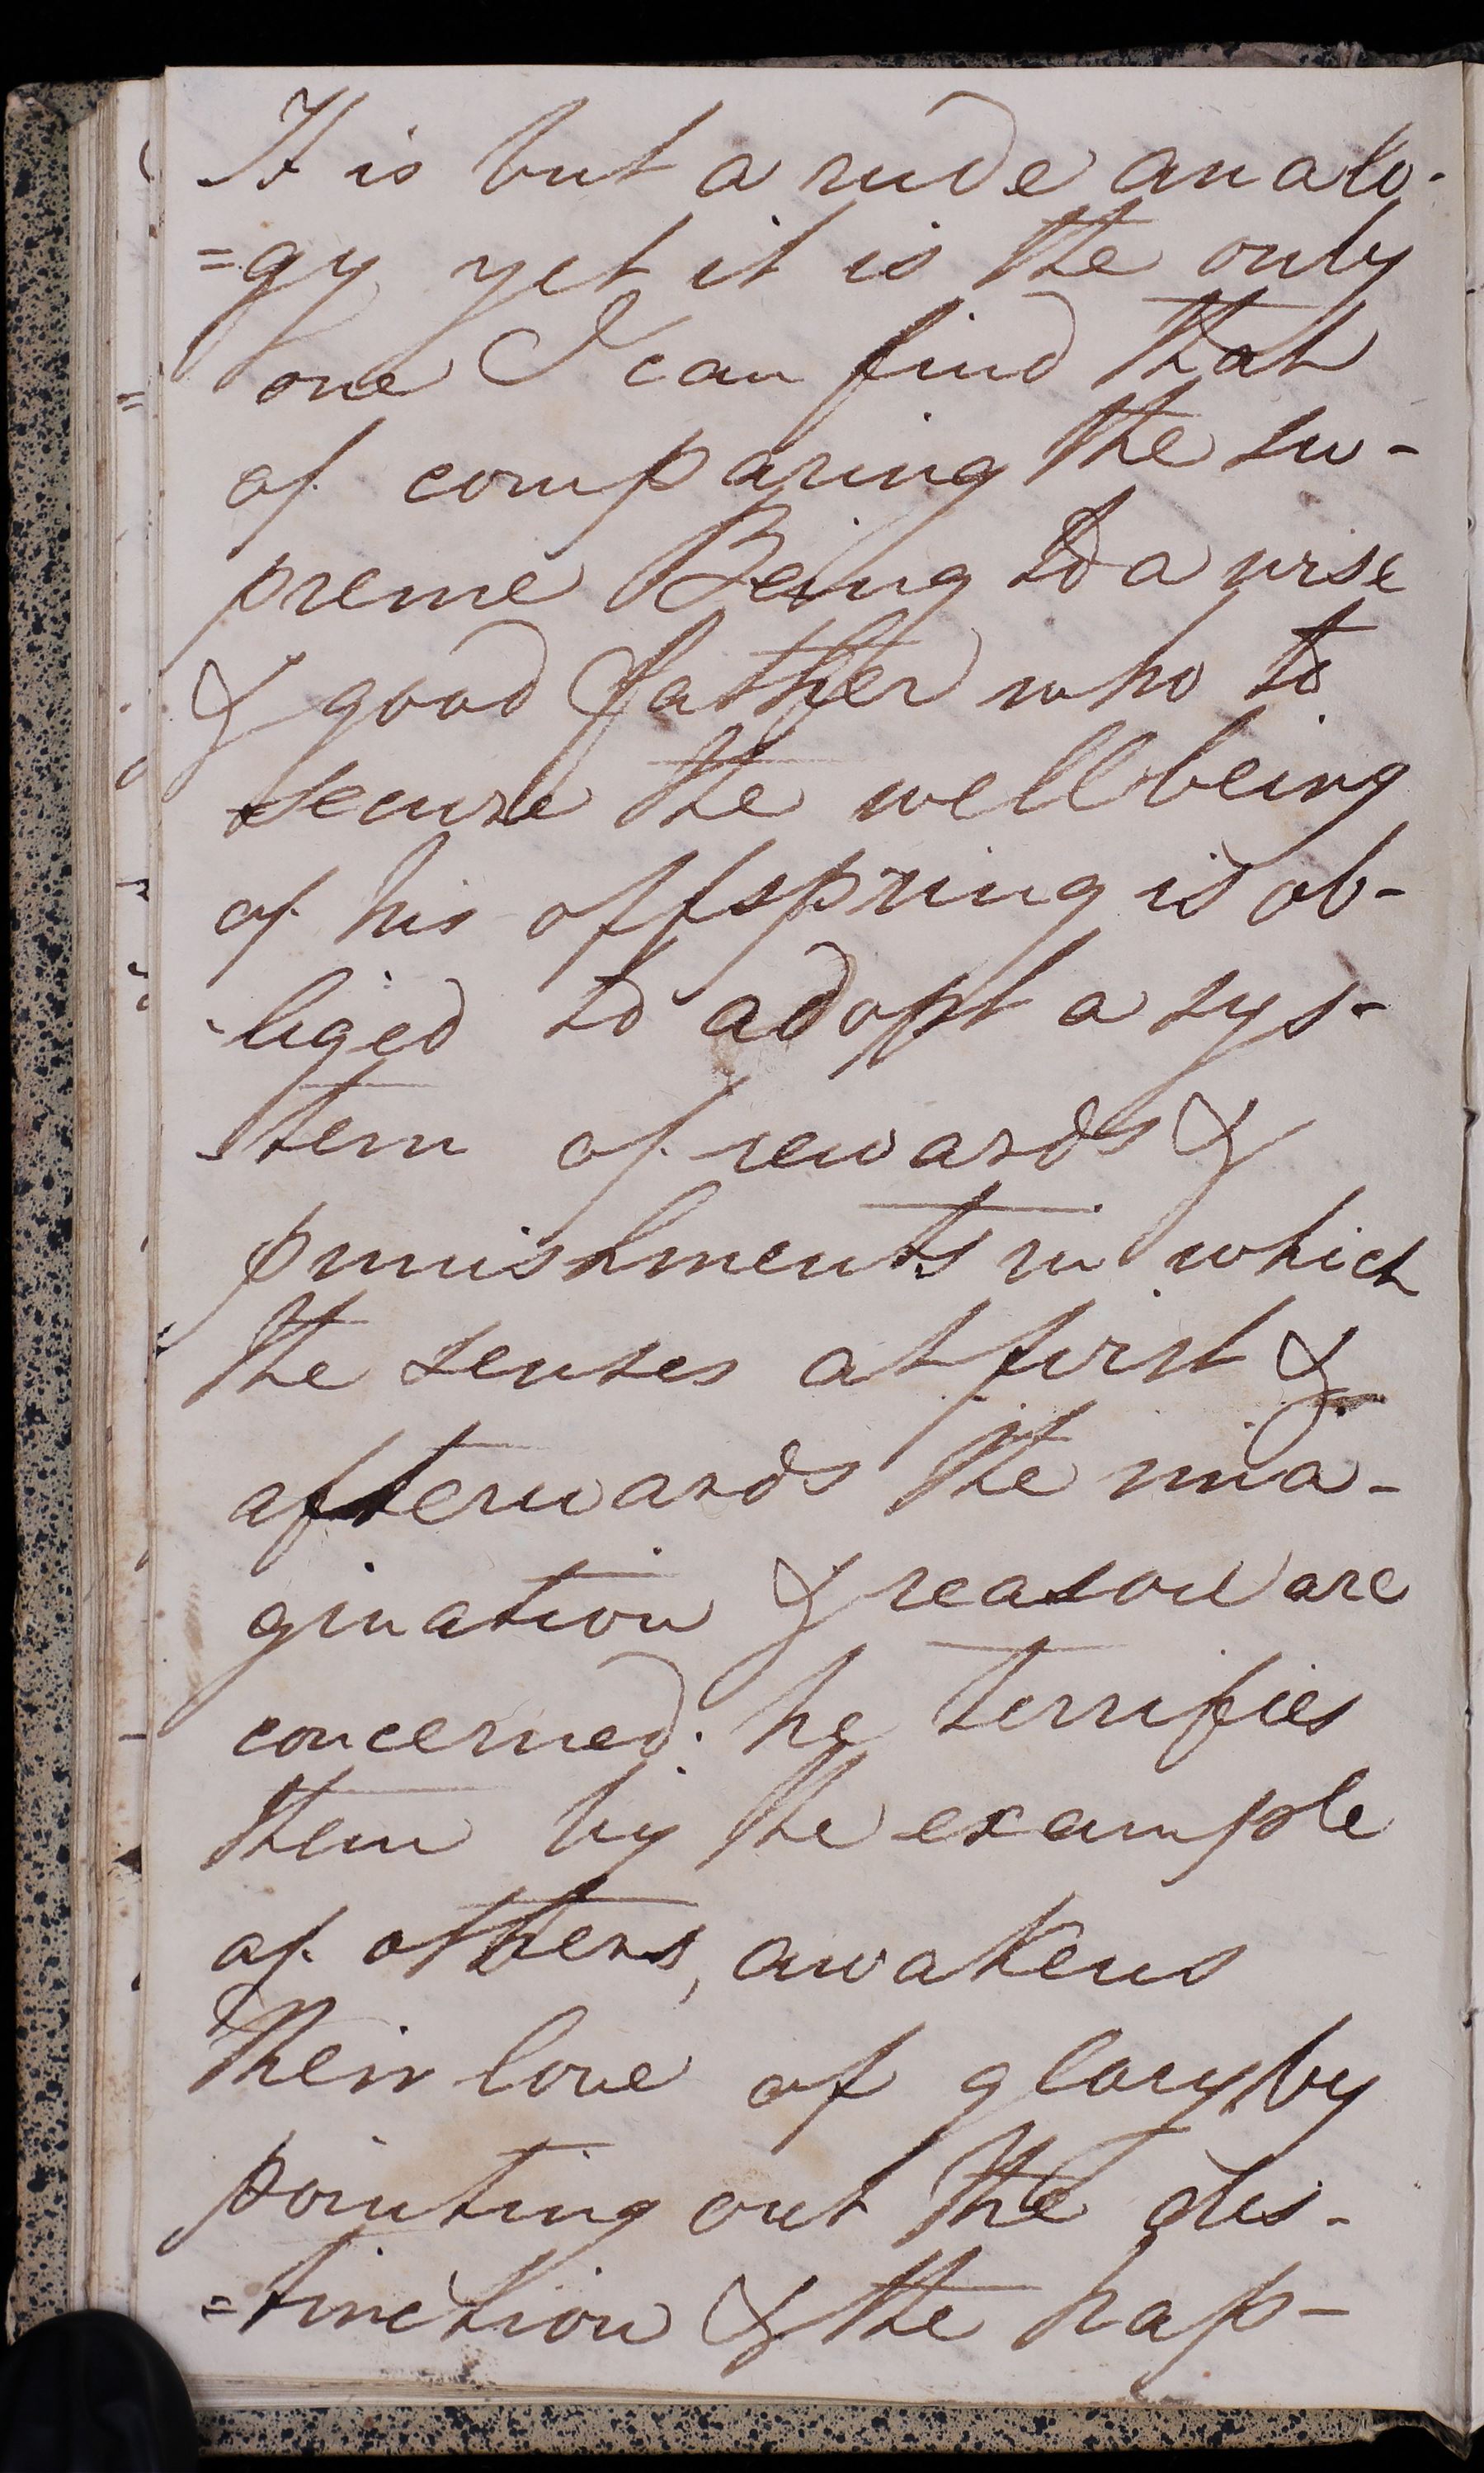 It is but a rude analo-
=gy yet it is the only
one I can find that
of comparing the su-
preme Being to a wise
& good father who to
secure the well being
of his offspring is ob-
-liged to adopt a sys-
-tem of rewards &
punishments in which
the senses at first &
afterwards the ima-
gination & reason are
concerned: he terrifies
them by the example
of others, awakens
their love of glory by
pointing out the dis-
=tinction & the hap-